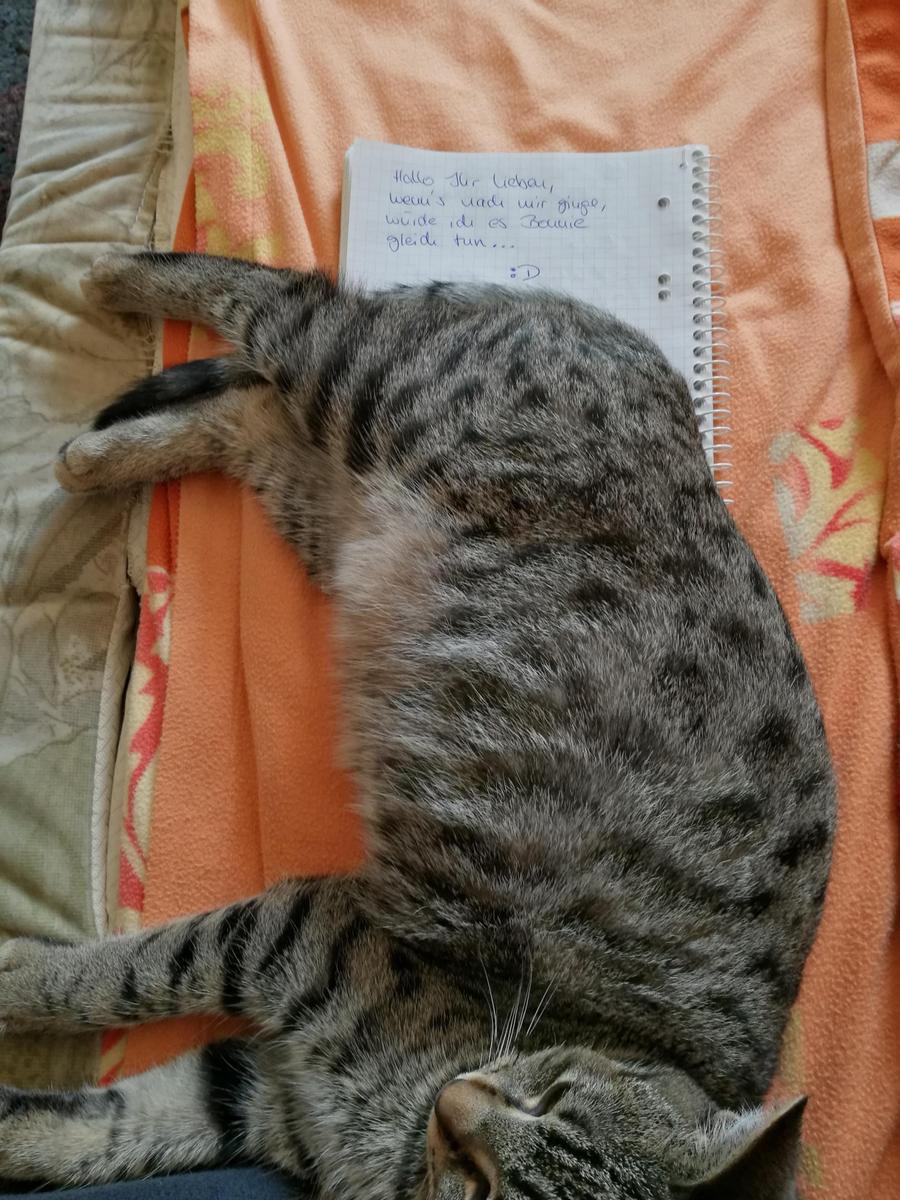 Hallo Ihr Lieben,
wenn's nach mir ginge,
würde ich es Bonnie
gleich tun...
:D